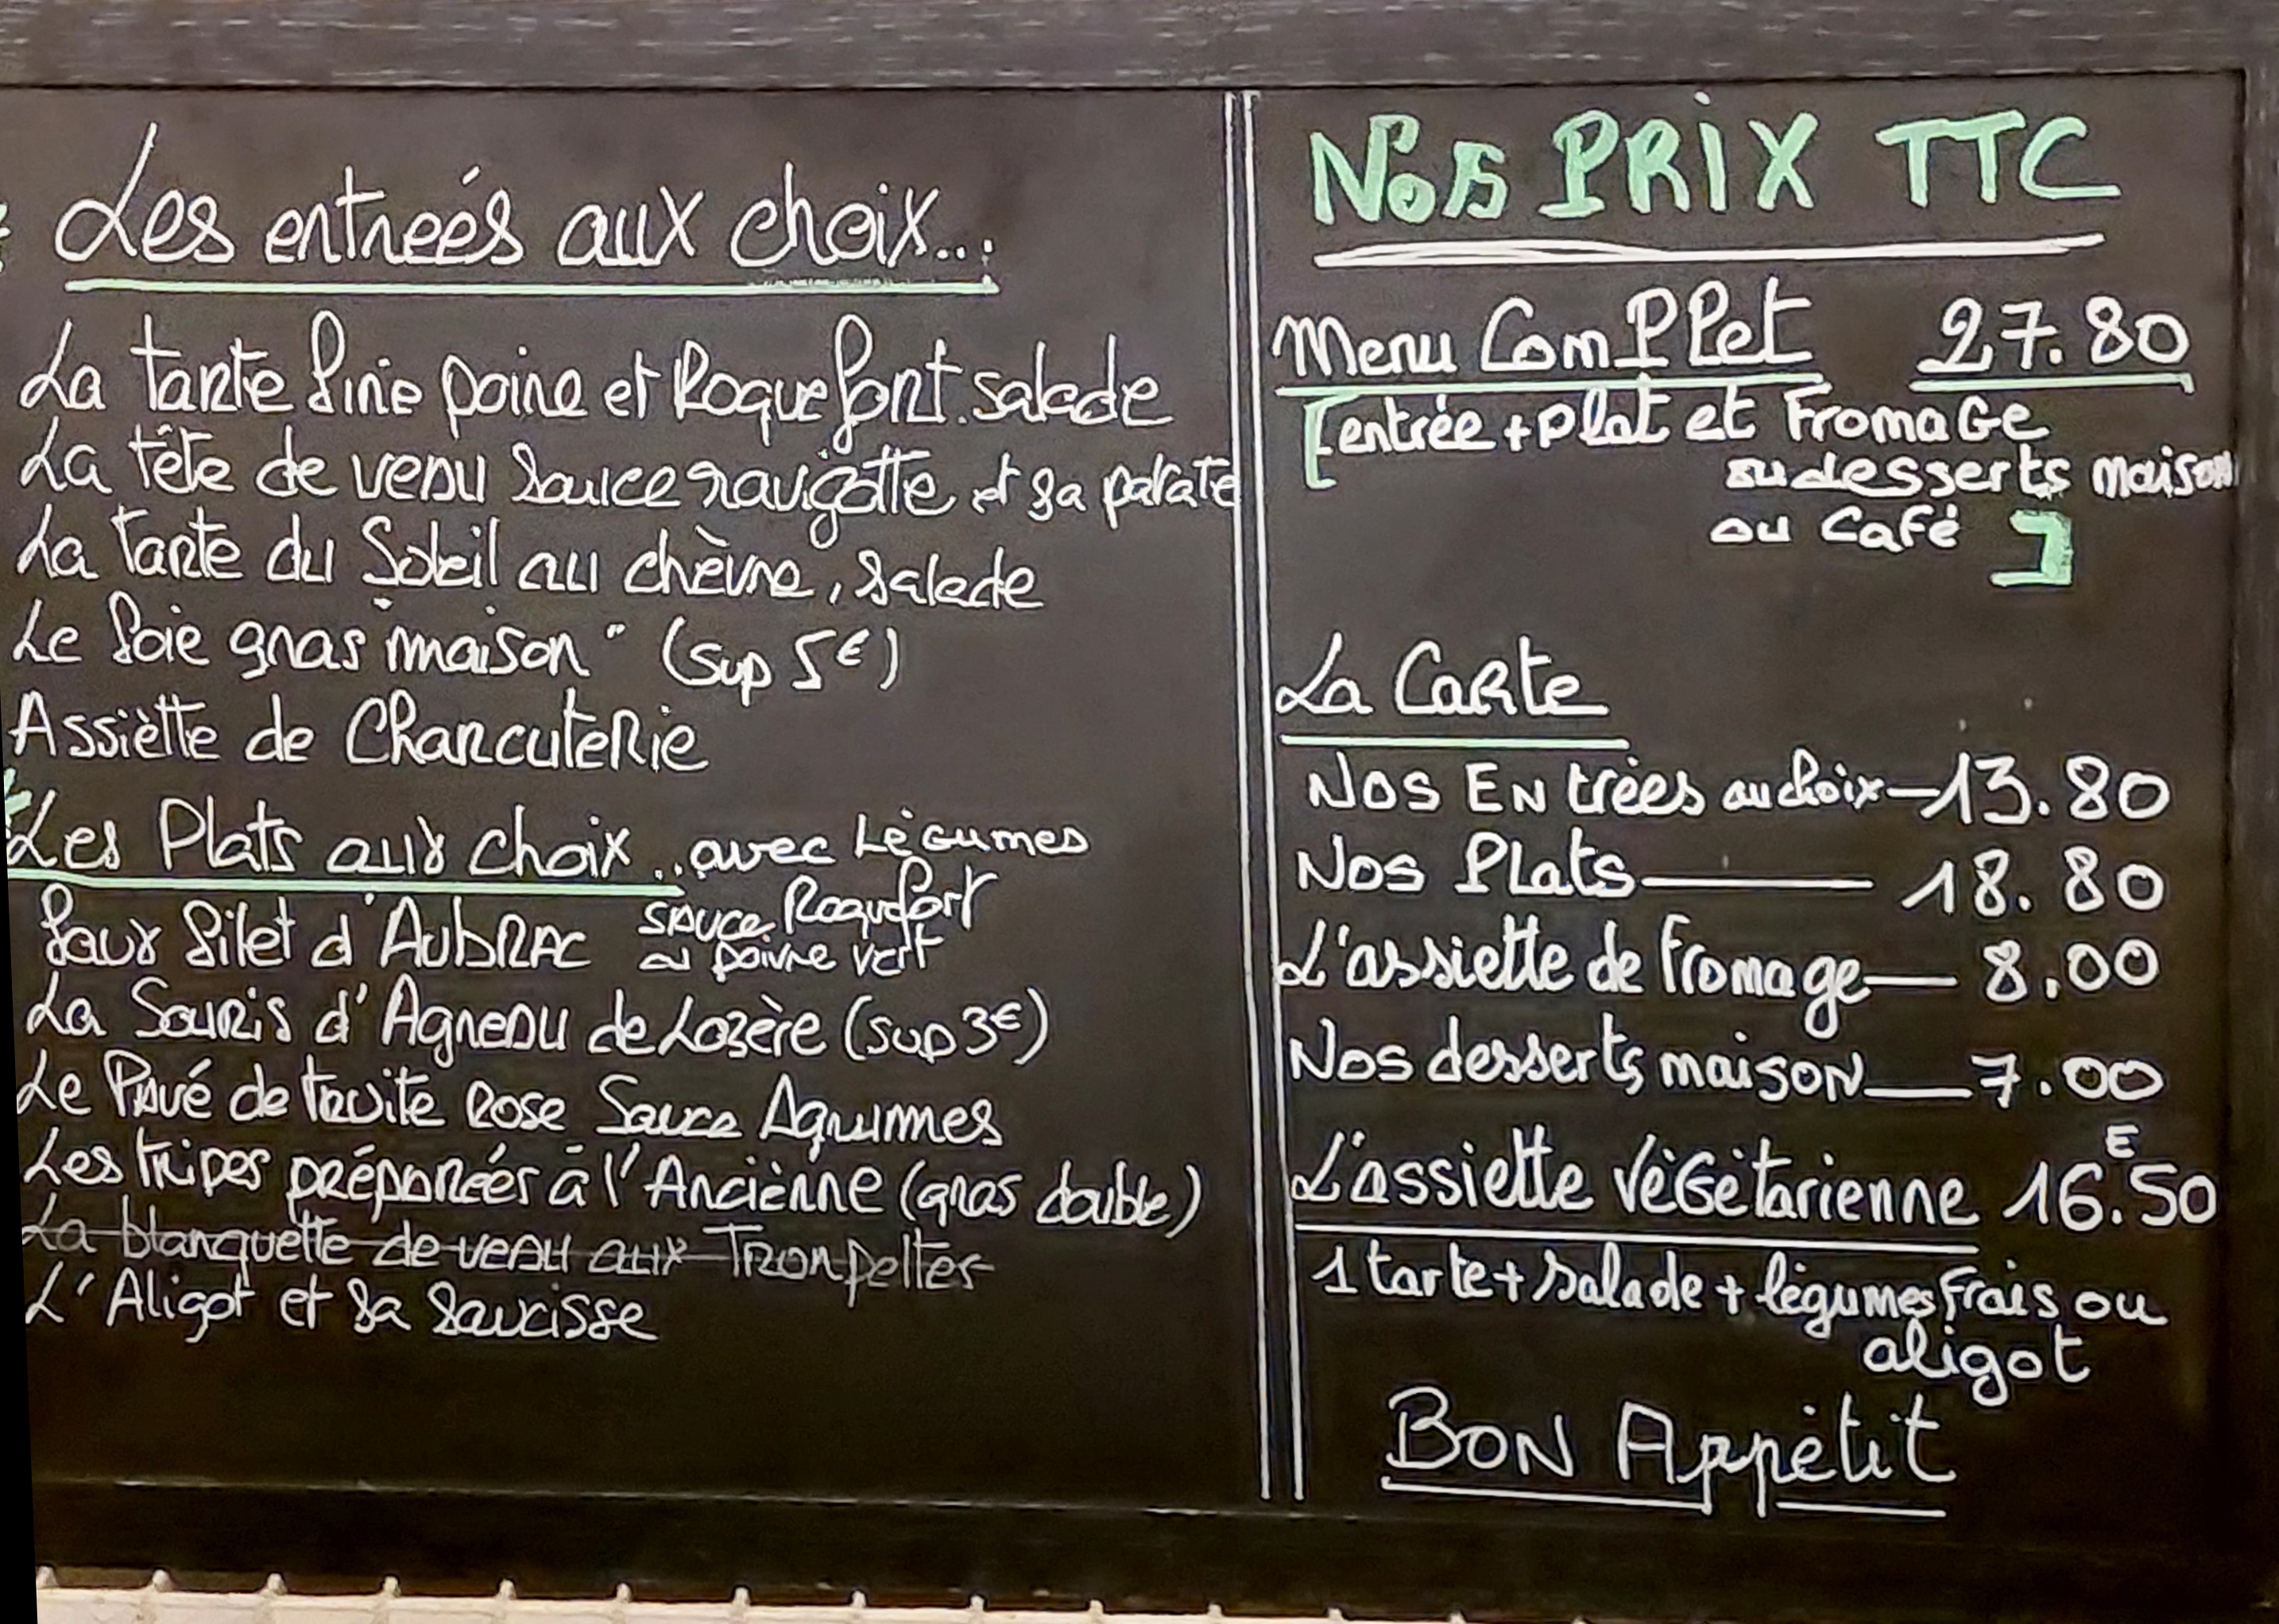 Les entreés aux choix...
La tarte fine poire et Roquefort. salade
La tête de veau sauce ravigotte et sa patate
La tarte du Soleil au chèvre, salade
Le foie gras "maison" (sup 5€)
Assiètte de Charcuterie
Les Plats aux choix... avec Légumes
faux filet d'AubRAC sauce Roquefort
ou poivre vert
La Souris d'Agneau de Lozère (sup 3€)
Le Pavé de truite Rose Sauce Agrumes
Les tripes préparéés à l'Anciènne (gras double)
La blanquette de veau aux Trompettes
L'Aligot et sa saucisse
NOS PRIX TTC
Menu ComPlet 27.80
[entrée + Plat et FromaGe
ou desserts maison
ou Café ]
La Carte
NOS ENtrées au choix — 13.80
Nos Plats — 18.80
L'assiette de Fromage — 8.00
Nos desserts maison — 7.00
L'assiette VéGétarienne 16.€50
1 tarte + salade + légumes Frais ou
aligot
BON Appétit